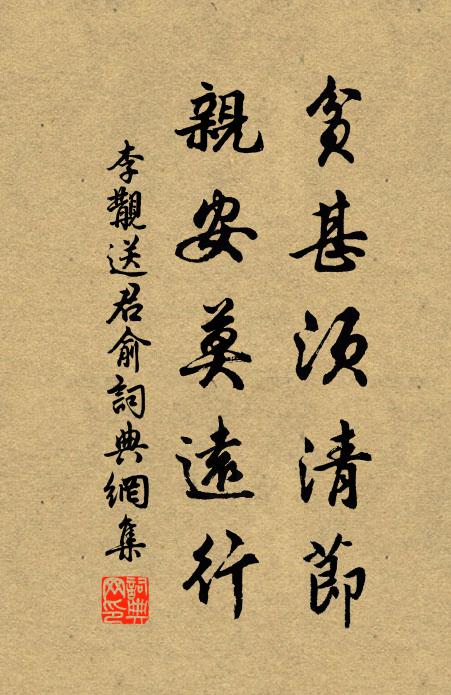 貧甚須清節
親安莫遠行
李覯送君俞詞典網集
詞典
网印